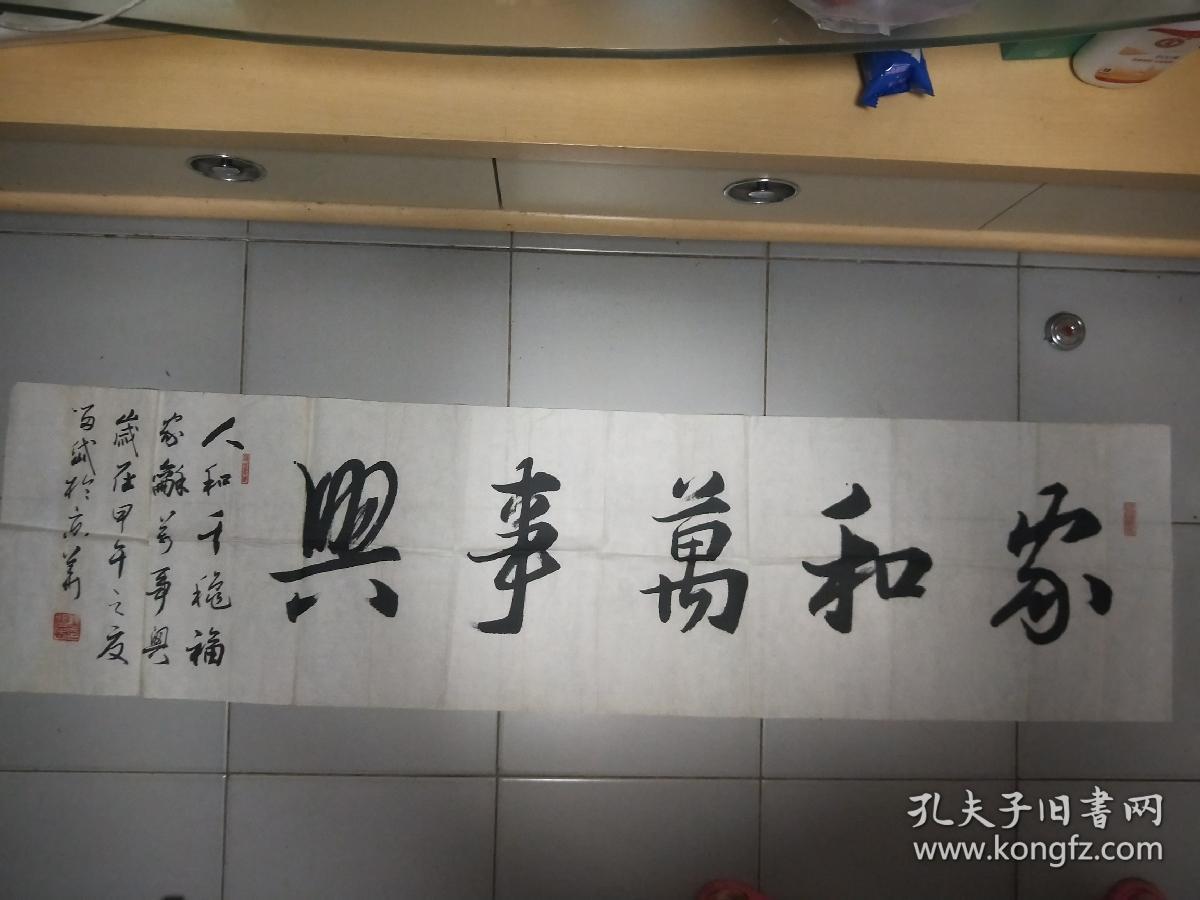 家和萬事興
人和千禧福
家龢萬事興
歲在甲午之夏
於京華
孔夫子旧书网
www.kongfz.com